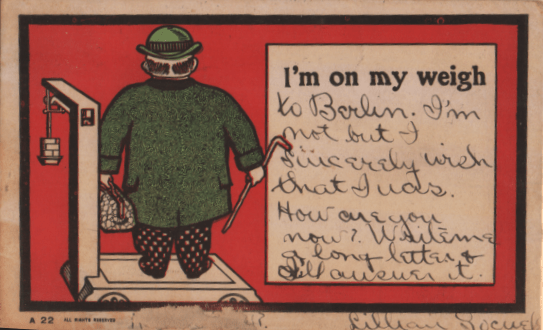 I'm on my weigh
to Berlin. I'm
not but I
sincerely wish
that I was.
How are you
now? Write me
a long letter &
I'll answer it.
A 22 ALL RIGHTS RESERVED
Lillian